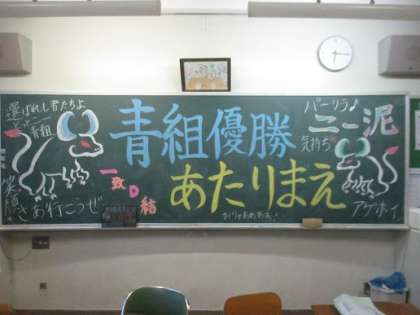 選ばれし者たちよ
青組
笑顔
さぁ行こうぜ
青組優勝
あたりまえ
一致D結
パーリラ♪
ニー泥
気持ち
アゲホイ